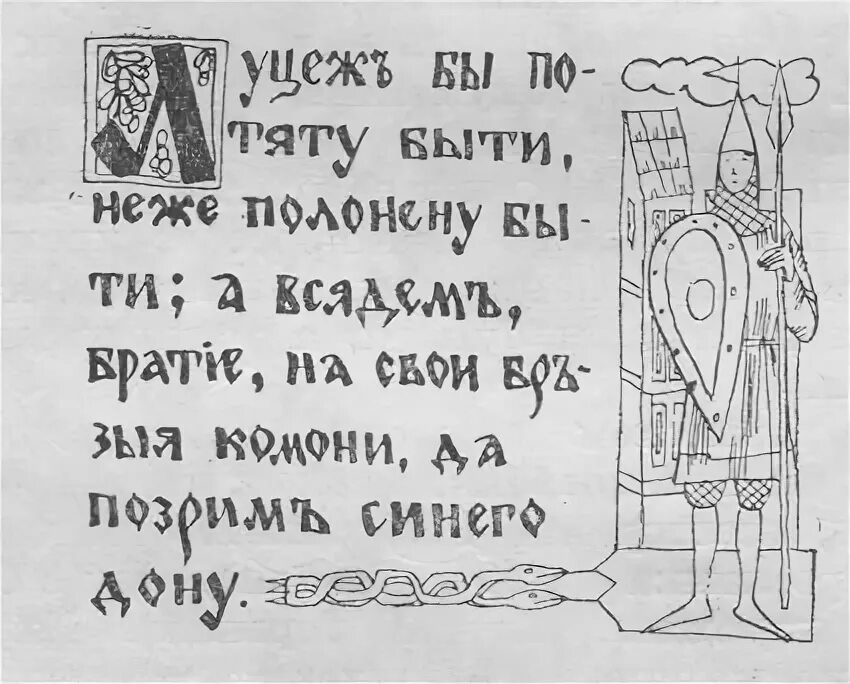 Луцежъ бы по-
тяту быти,
неже полонену бы-
ти; а всядемъ,
братіе, на свои бръ-
зыя комони, да
позримъ синего
дону.